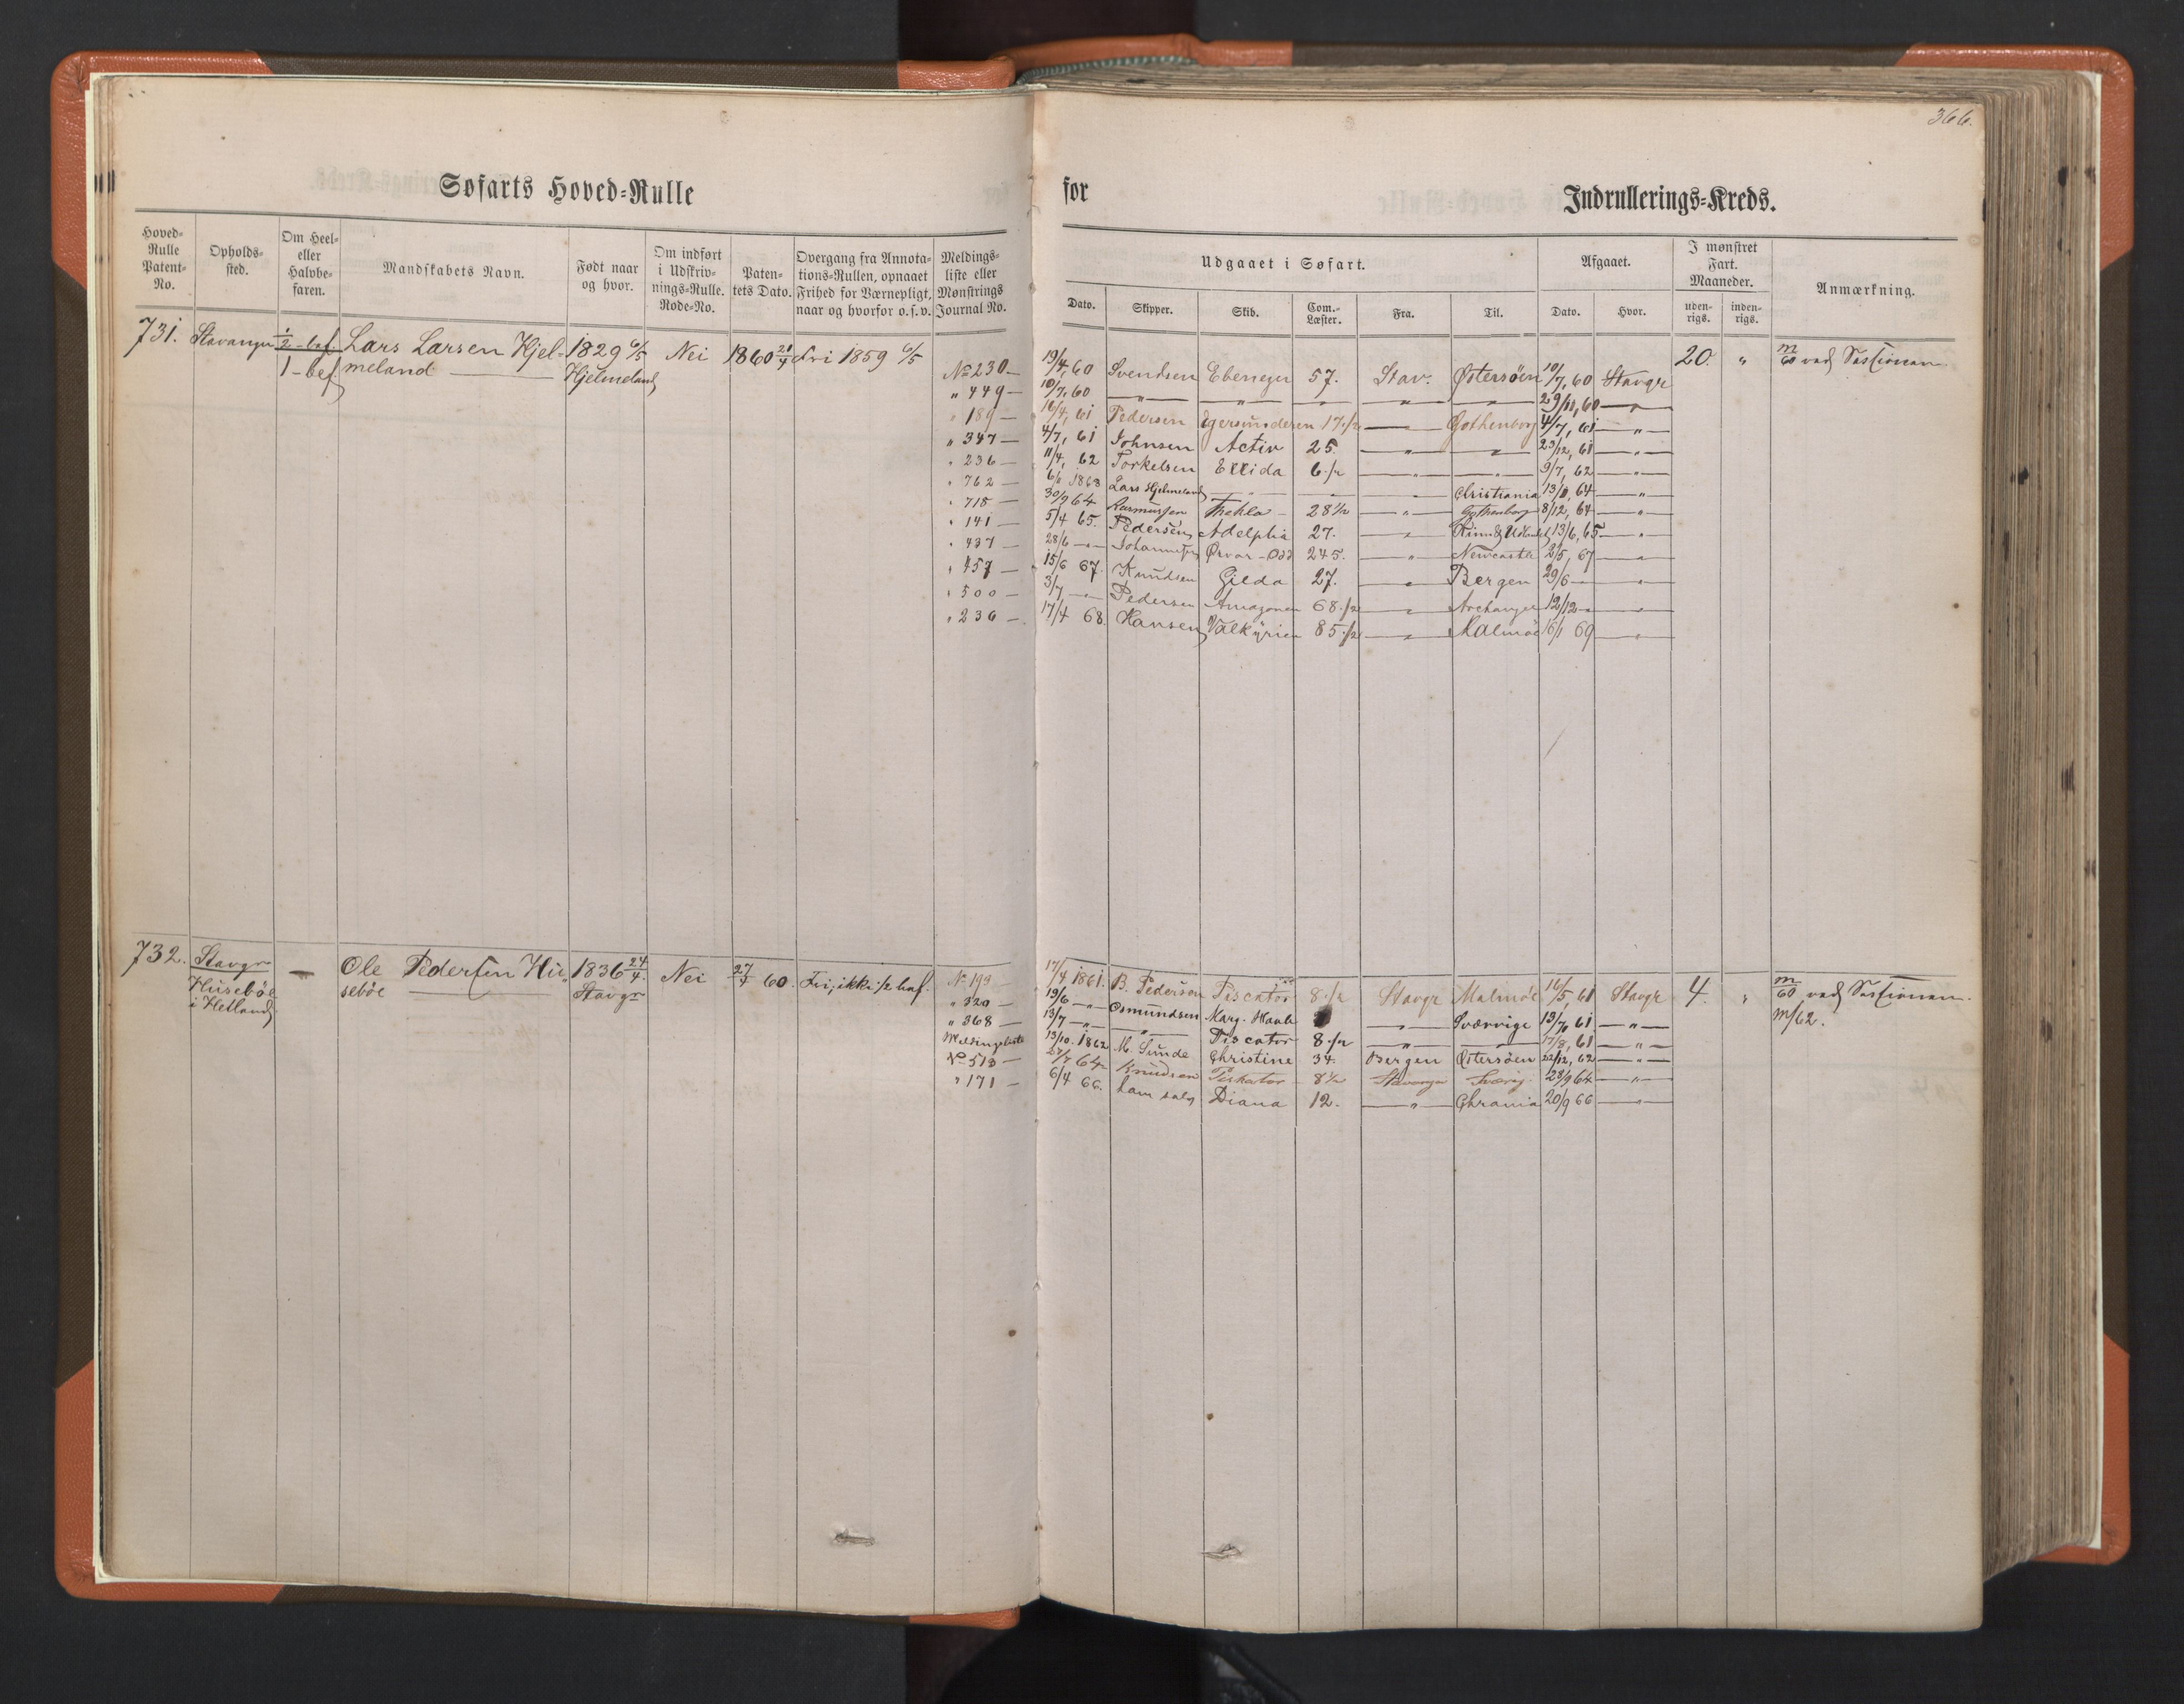 366.
Søfarts Hoved-Rulle for Indrullerings-Kreds.
Hoved-Rulle Patent-No. | Opholds-sted. | Om Heel- eller Halvbe-faren. | Mandskabets Navn. | Født naar og hvor. | Om indført i Udskriv-nings-Rulle. Rode-No. | Paten-tets Dato. | Overgang fra Annota-tions-Rullen, opnaaet Frihed for Værnepligt, naar og hvorfor o. s. v. | Meldings-liste eller Mønstrings Journal No.
Udgaaet i Søfart. | Afgaaet. | I mønstret Fart. Maaneder. | Anmærkning.
Dato. | Skipper. | Skib. | Com.-Læster. | Fra. | Til. | Dato. | Hvor. | uden-rigs. | inden-rigs.
731. Stavanger 1/2 - bef. Lars Larsen Hjel- 1829 6/5 Nei 1860 21/4 Fri 1859 6/5
1 - bef meland Hjelmeland
No 230 — 19/4, 60 Svendsen Ebeneser 57. Stav. Østersøen 10/7, 60 Stavgr 20. " m/60 ved Sessionen.
" 449 — 10/7, 60 — " — — " — — — " — — " — 29/11, 60 — " —
" 189 — 16/4, 61 Pedersen Egersunderen 17 1/2 — Gothenborg 4/7, 61 — " —
" 347 — 4/7, 61 Johnsen Activ 25. — " — — " — 23/12, 61 — " —
" 236 — 11/4, 62 Torkelsen Ellida 6 1/2 — " — — " — 9/7, 62 — " —
" 762 — 6/11 1863 Lars Hjelmeland — " — — — " — Christiania 13/8, 64 — " —
" 718 — 30/9 64 Rasmussen Thekla — 28 1/2 — " — Gothenborg 8/12, 64 — " —
" 141 — 5/4 65. Pedersen Adelphia 27. — " — 13/6, 65 — " —
" 437 — 28/6 — " — Johannesen Ørvar-Odd 245. — " — Newcastle 2/5, 67 — " —
" 457 — 15/6 67. Knudsen Gilda 27. — " — Bergen 29/6 — — " —
" 500 — 3/7, — " — Pedersen Amazonen 68 1/2 — " — Archangel 12/12 — — " —
" 236 — 17/4 68. Hansen Valkyrien 85 1/2 — " — Malmøe 16/1 69 — " —
732. Stavgr — Ole Pedersen Hu- 1836 24/4. Nei 27/4 60. Fri, ikke 1/2 bef.
Husebøe sebøe Stavgr
i Hetland
No 193 — 17/4 1861. B. Pedersen Piscator 8 1/2 Stavgr Malmøe 16/5, 61 Stavgr 4. " m/60 ved Sessionen.
" 320 — 19/6 — " — Osmundsen Marg. — " — Sverrige 13/7, 61 — " — m/62.
" 368 — 13/7 — " — — " — Piscator 8 1/2 — " — — 17/8, 61 — " —
Meldingsliste 13/10. 1862 M. Sunde Christine 34. Bergen Østersøen 22/12, 62 — " —
No 513 — 27/7 64 Knudsen Piskator 8 1/2 Stavanger Sverig. 28/9 64 — " —
" 171 — 6/4 66. Diana 12. — " — Chrania 20/9 66 — " —